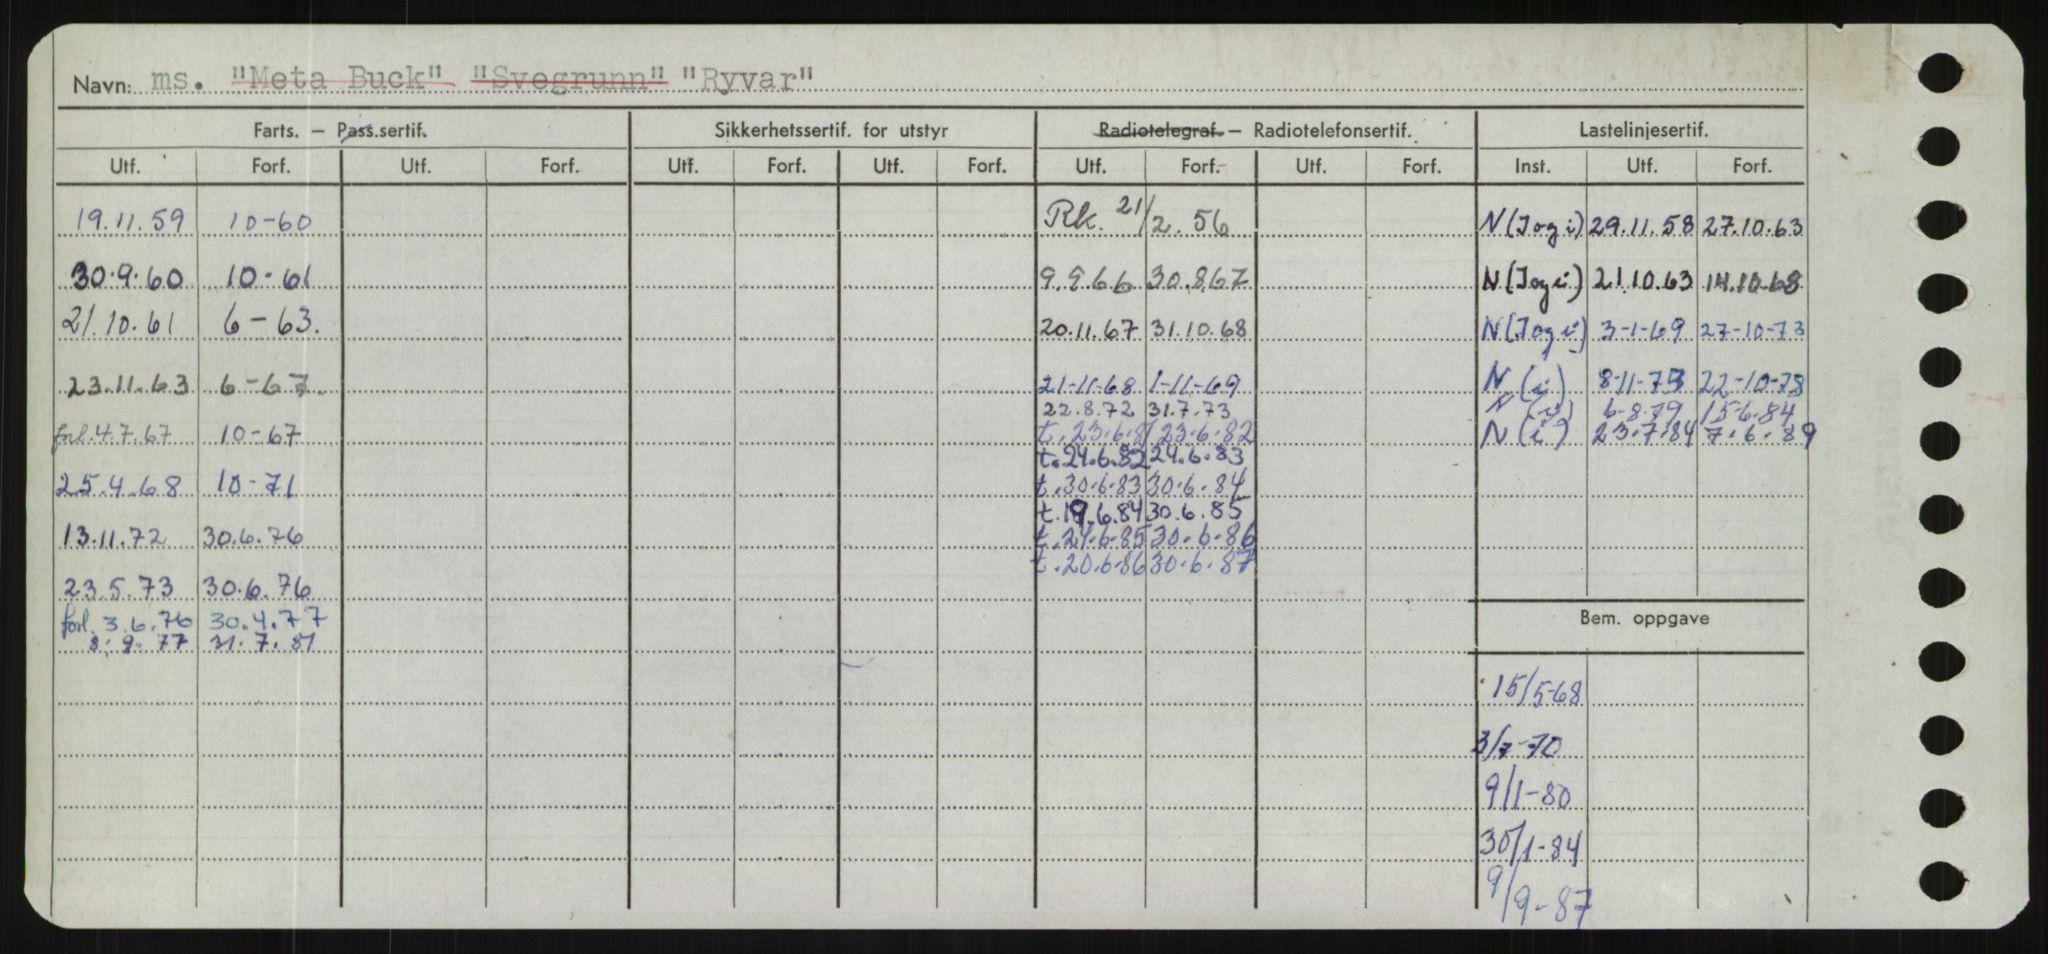 Navn: ms. "Meta Buck" "Svegrunn" "Ryvar"
Farts. — Pass.sertif. Sikkerhetssertif. for utstyr Radiotelegraf. — Radiotelefonsertif. Lastelinjesertif.
Utf. Forf. Utf. Forf. Utf. Forf. Utf. Forf. Utf. Forf. Utf. Forf. Inst. Utf. Forf.
19.11.59 10-60 Rk. 21/2.56 N(Jog i) 29.11.58 27.10.63
30.9.60 10-61 9.9.66 30.8.67 N(Jog i) 21.10.63 14.10.68
21.10.61 6-63. 20.11.67 31.10.68 N(Jog i) 3-1-69 27-10-73
23.11.63 6-67. 21-11-68 1-11-69 N(i) 8-11-73 22-10-78
22.8.72 31.7.73 N(i) 6-8.79 15-6.84
forl.4.7.67 10-67 t.23.6.81 23.6.82 N(i) 23.7.84 7.6.89
t.24.6.82 24.6.83
25.4.68 10-71 t.30.6.83 30.6.84
t.19.6.84 30.6.85
13.11.72 30.6.76 t.24.6.85 30.6.86
t.20.6.86 30.6.87
23.5.73 30.6.76
forl. 3.6.76 30.4.77
8.9.77 31.7.81
Bem. oppgave
15/5-68
3/7-70
9/1-80
30/1-84
9/9-87